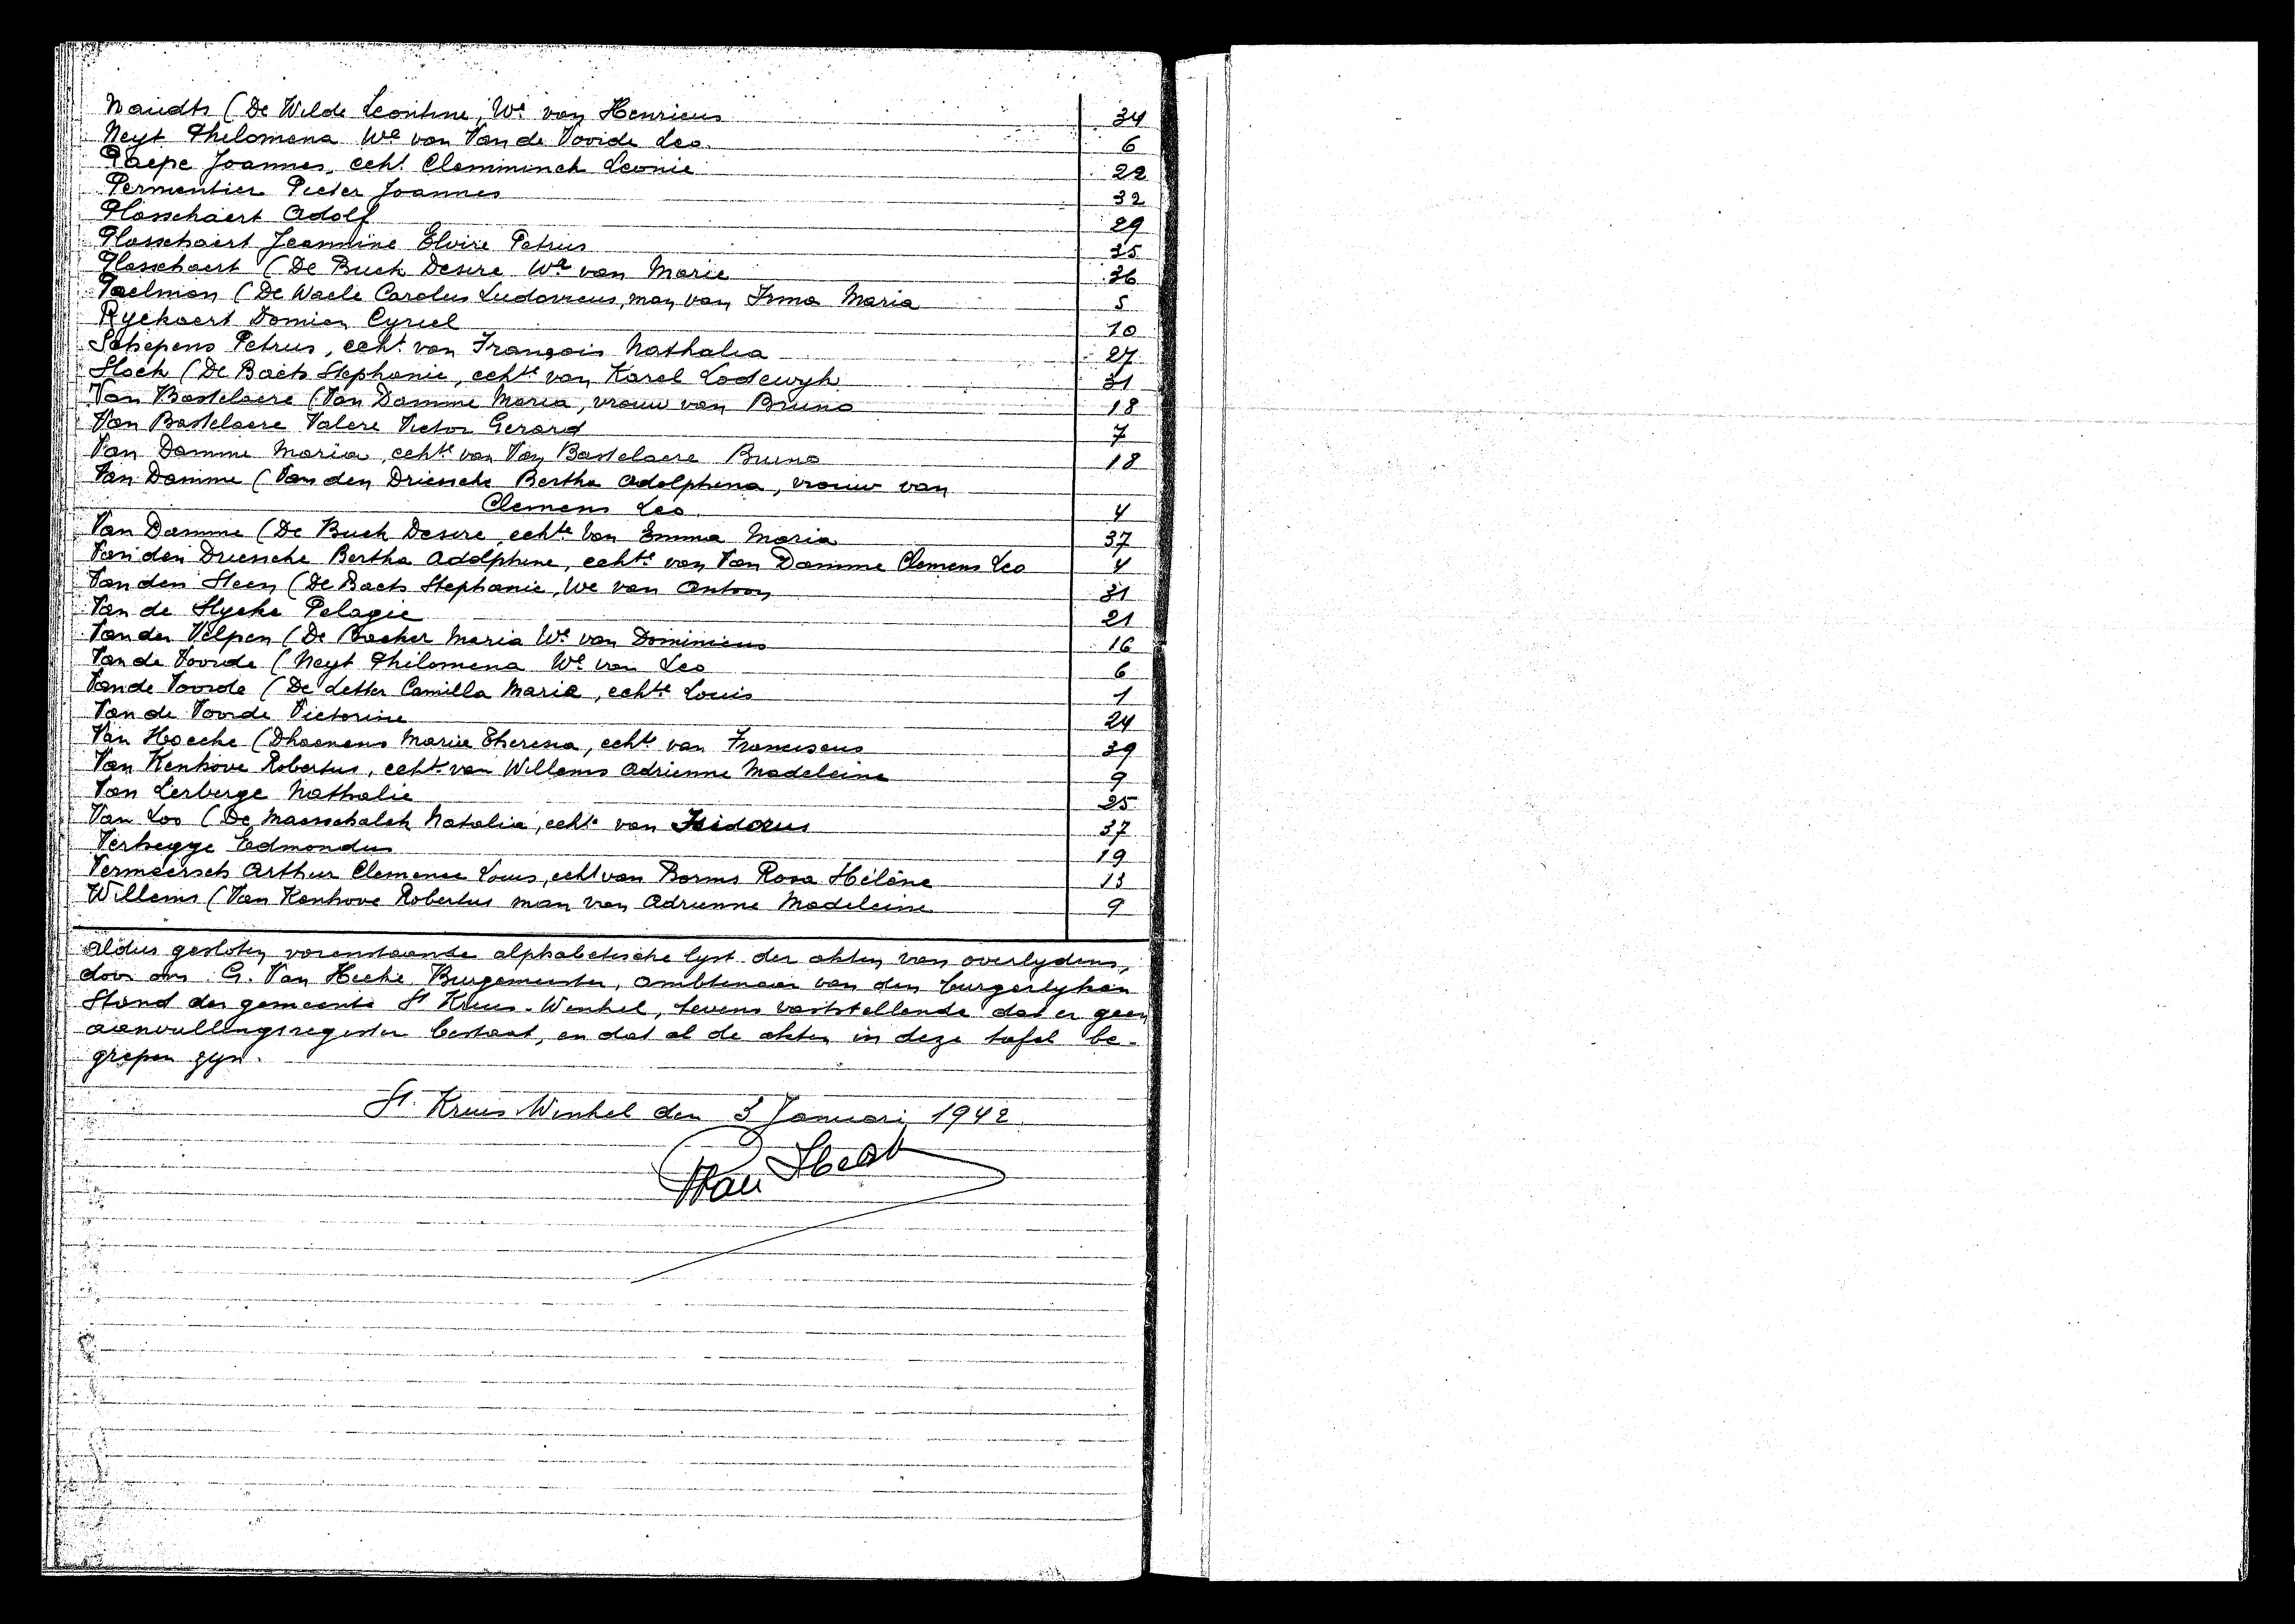 Naudts (De Wilde Leontine, We van Henricus 34
Neyt Philomena We van Van de Voorde Leo. 6
Paepe Joannes, echt. Clemminck Leonie 22
Permentier Pieter Joannes 32
Plasschaert Adolf 29
Plasschaert Jeannine Elvire Petrus 35
Plasschaert (De Buck Desire We van Marie 36
Poelman (De Waele Carolus Ludovicus, man van Irma Maria 5
Ryckaert Domien Cyriel 10
Schepens Petrus, echt. van François Nathalia 27
Stock (De Baets Stephanie, echte van Karel Lodewyk 31
Van Bastelaere (Van Damme Maria, vrouw van Bruno 18
Van Bastelaere Valere Victor Gerard 7
Van Damme Maria, echte van Van Bastelaere Bruno 18
Van Damme (Van den Driessche Bertha Adolphina, vrouw van
Clemens Leo 4
Van Damme (De Buck Desire echte van Emma Maria 37
Van den Driessche Bertha Adolphine, echte van Van Damme Clemens Leo 4
Van den Steen (De Baets Stephanie, We van Antoon 31
Van de Slycke Pelagie 21
Van der Velpen (De Backer Maria We van Dominicus 16
Van de Voorde (Neyt Philomena We van Leo 6
Van de Voorde (De Letter Camilla Maria, echte Louis 1
Van de Voorde Victorine 24
Van Hoecke (Dhaenens Marie Theresa, echte van Franciscus 39
Van Kenhove Robertus, echt. van Willems Adrienne Madeleine 9
Van Lerberge Nathalie 25
Van Loo (De Maesschalck Natalia, echte van Isidorus 37
Verhegge Edmondus 19
Vermeersch Arthur Clemence Louis, echt van Borms Rosa Hélène 13
Willems (Van Kenhove Robertus man van Adrienne Madeleine 9
Aldus gesloten vorenstaande alphabetische lyst der akten van overlydens,
door ons G. Van Hecke Burgemeester, ambtenaar van den burgerlyken
Stand der gemeente St Kruis-Winkel, tevens vaststellende dat er geen
aanvullingsregister bestaat, en dat al de akten in deze tafel be-
grepen zyn.
St. Kruis-Winkel den 3 Januari 1942.